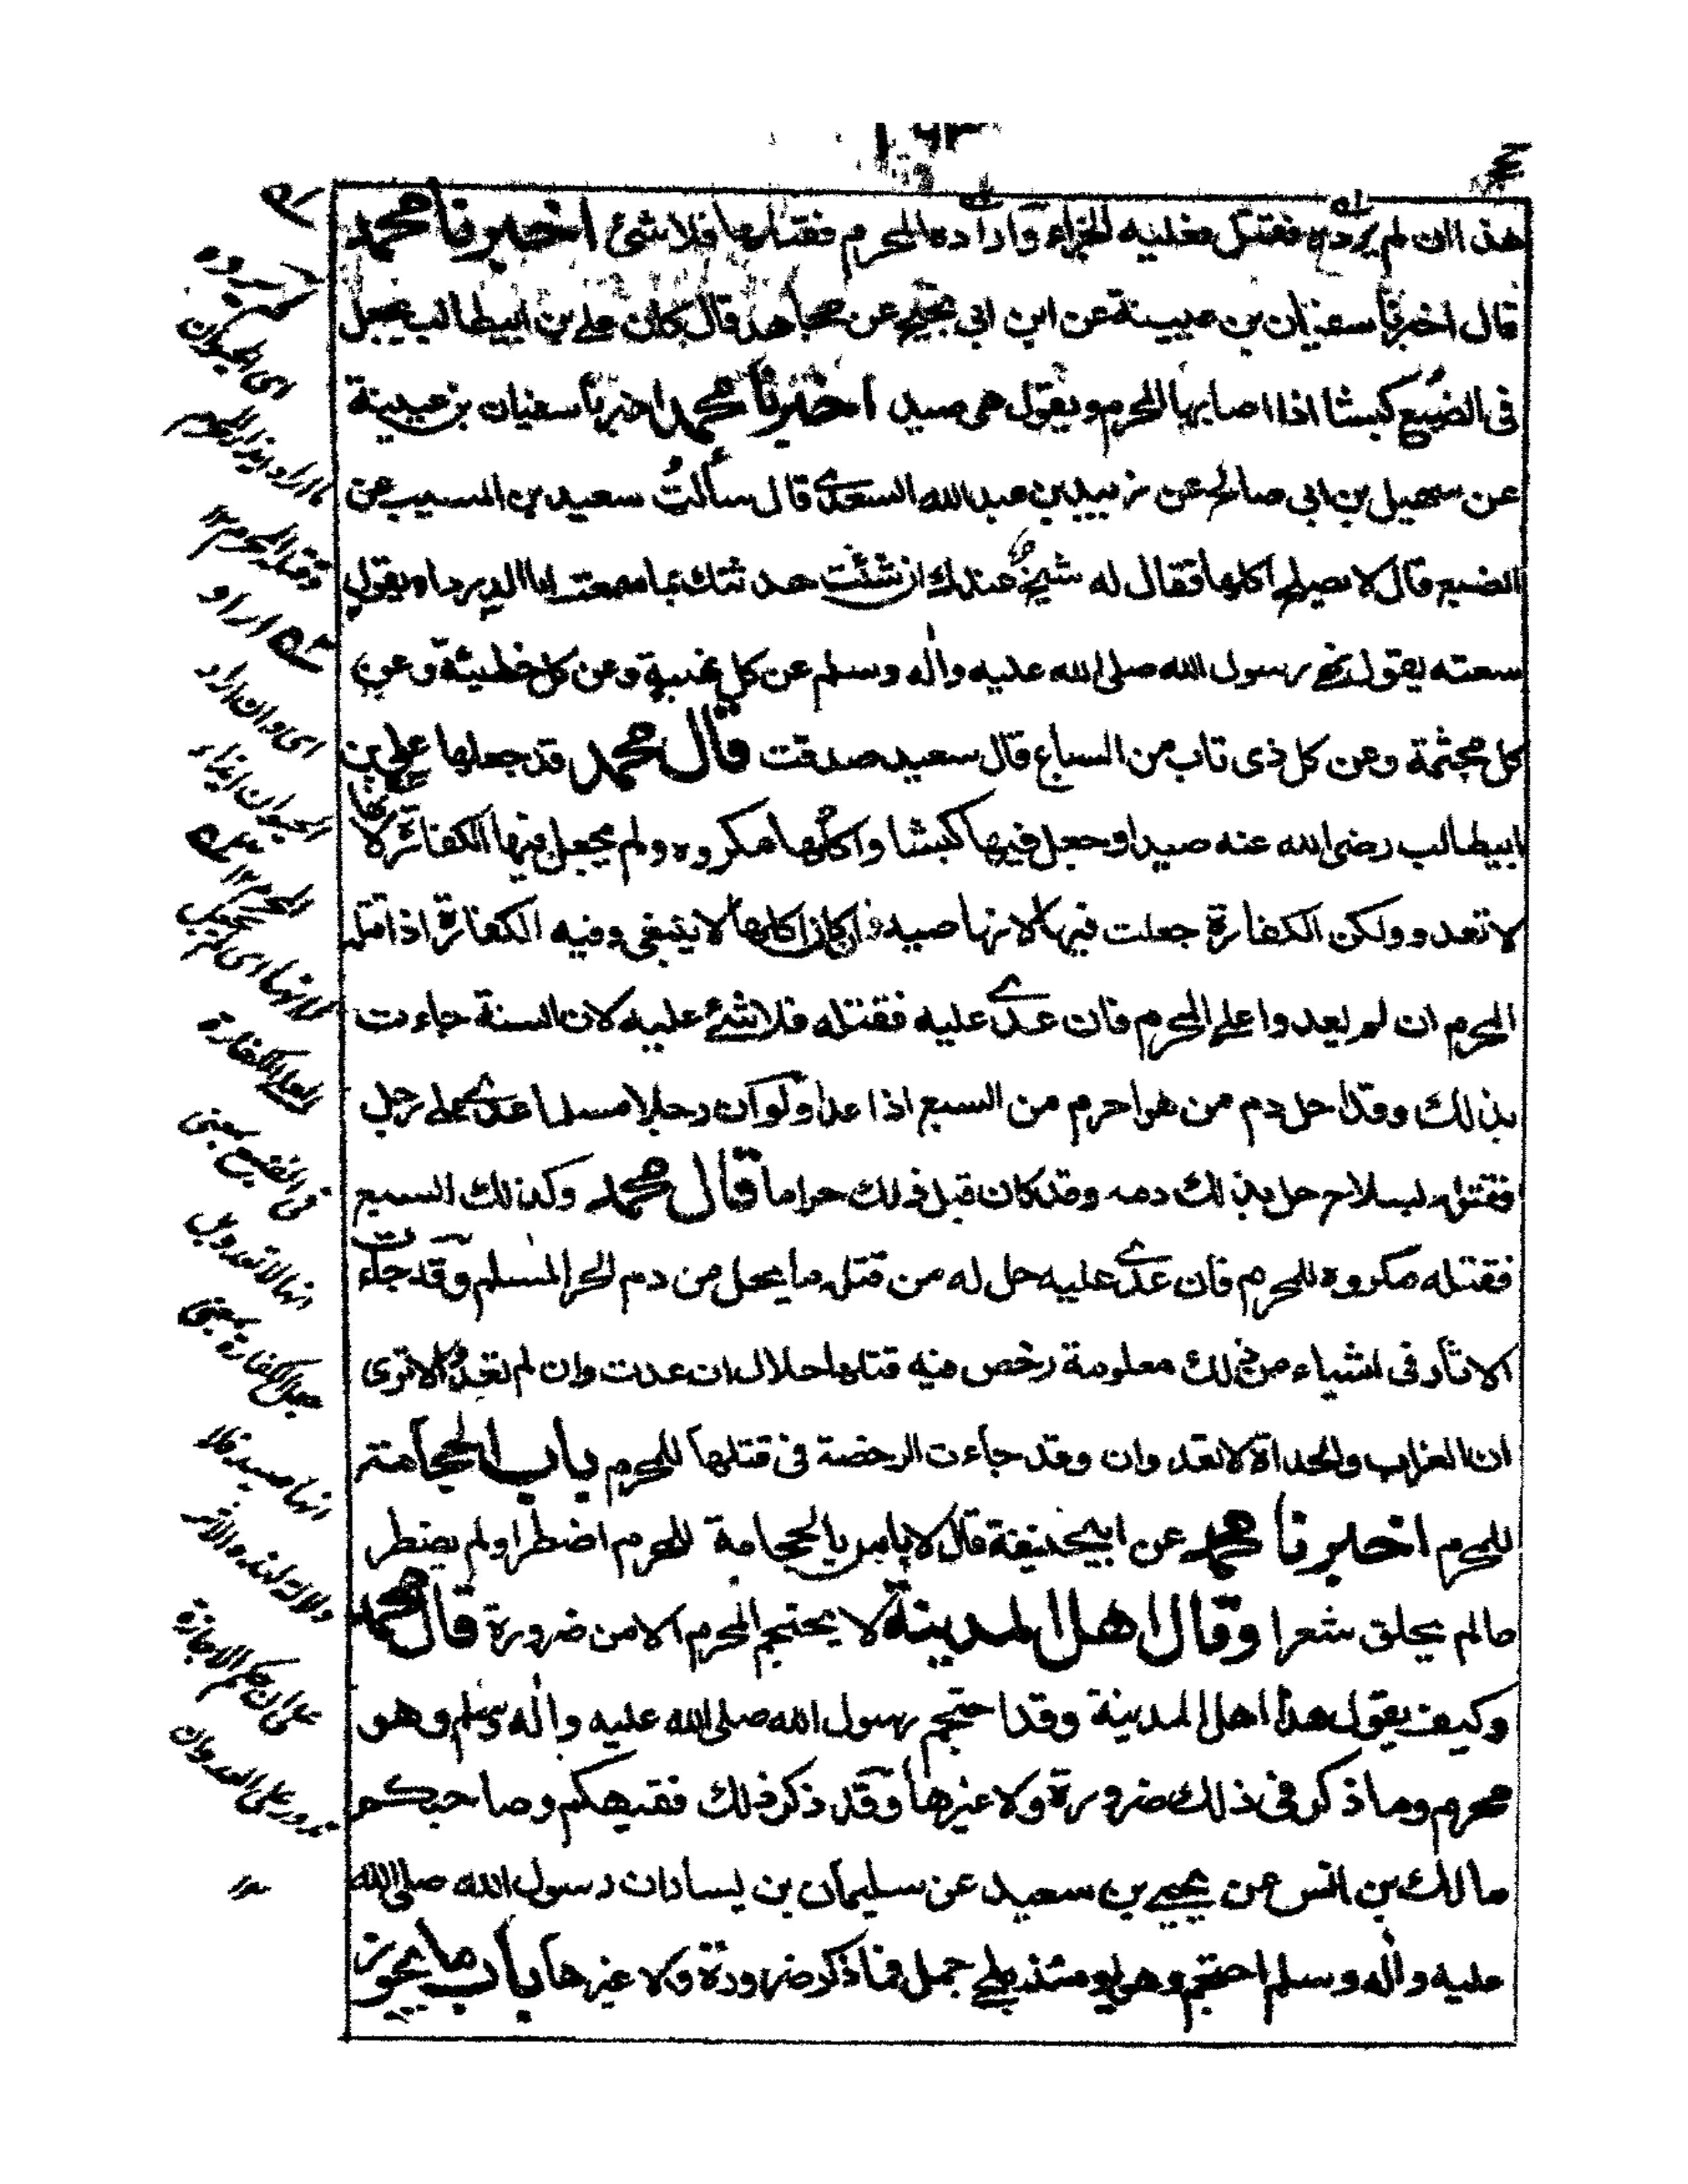 هذا ان لم يرده فقتل فعليه الجزاء وان اراده المحرم فقتلها فلا شئ اخبرنا محمد
قال اخبرنا سفيان بن عيينة عن ابن ابى نجيح عن مجاهد قال كان على بن ابيطالب يجعل
فى الضبع كبشا اذا اصابها المحرم ويقول هى صيد اخبرنا محمد اخبرنا سفيان بن عيينة
عن سهيل بن ابى صالح عن زبيد بن عبدالله السعدى قال سألتُ سعيد بن المسيب عن
الضبع قال لا يصلح اكلها فقال له شيخ عندك ان شئت حدثتك بما سمعت ابا الدرداء يقول
سمعته يقول نهى رسول الله صلى الله عليه واٰله وسلم عن كل نهبة وعن كل خطيئة وعن
كل مجثمة وعن كل ذى ناب من السباع قال سعيد صدقت قال محمد قد جعلها على بن
ابيطالب رضى الله عنه صيدا وجعل فيها كبشا واكلها مكروه ولم يجعل فيها الكفارة لانها
لا تعدو ولكن الكفارة جعلت فيها لانها صيد وان كان اكلها لا ينبغى وفيه الكفارة اذا قتله
المحرم ان لم يعدوا على المحرم فان عدى عليه فقتله فلا شئ عليه لان السنة جاءت
بذلك وقد احل دم من هو احرم من السبع اذا عدا ولو ان رجلا مسلما عدى على رجل
فقتله بسلاح حل بذلك دمه وقد كان قبل ذلك حراما قال محمد وكذلك السبع
فقتله مكروه للمحرم فان عدى عليه حل له من قتله ما يحل من دم الحر المسلم وقد جاءت
الاثار فى اشياء من ذلك معلومة رخص فيه قتلها حلال ان عدت وان لم تعد الا ترى
ان الغراب والحداة لا تعد وان وقد جاءت الرخصة فى قتلها للمحرم باب الحجامة
للمحرم اخبرنا محمد عن ابيحنيفة قال لا باس بالحجامة للمحرم اضطر او لم يضطر
مالم يحلق شعرا وقال اهل المدينة لا يحتجم المحرم الا من ضرورة قال محمد
وكيف يقول هذا اهل المدينة وقد احتجم رسول الله صلى الله عليه واٰله وسلم وهو
محرم وما ذكر فى ذلك ضرورة ولا غيرها وقد ذكر ذلك فقيهكم وصاحبكم
مالك بن انس عن يحيى بن سعيد عن سليمان بن يسار ان رسول الله صلى الله
عليه واٰله وسلم احتجم وهو يومئذ بلحى جمل فما ذكر ضرورة ولا غيرها باب ما يجوز
اى الحيوان
اى وان اراد
الحيوان ايذاء
انها لا تعدو بل
انها صيد فلا